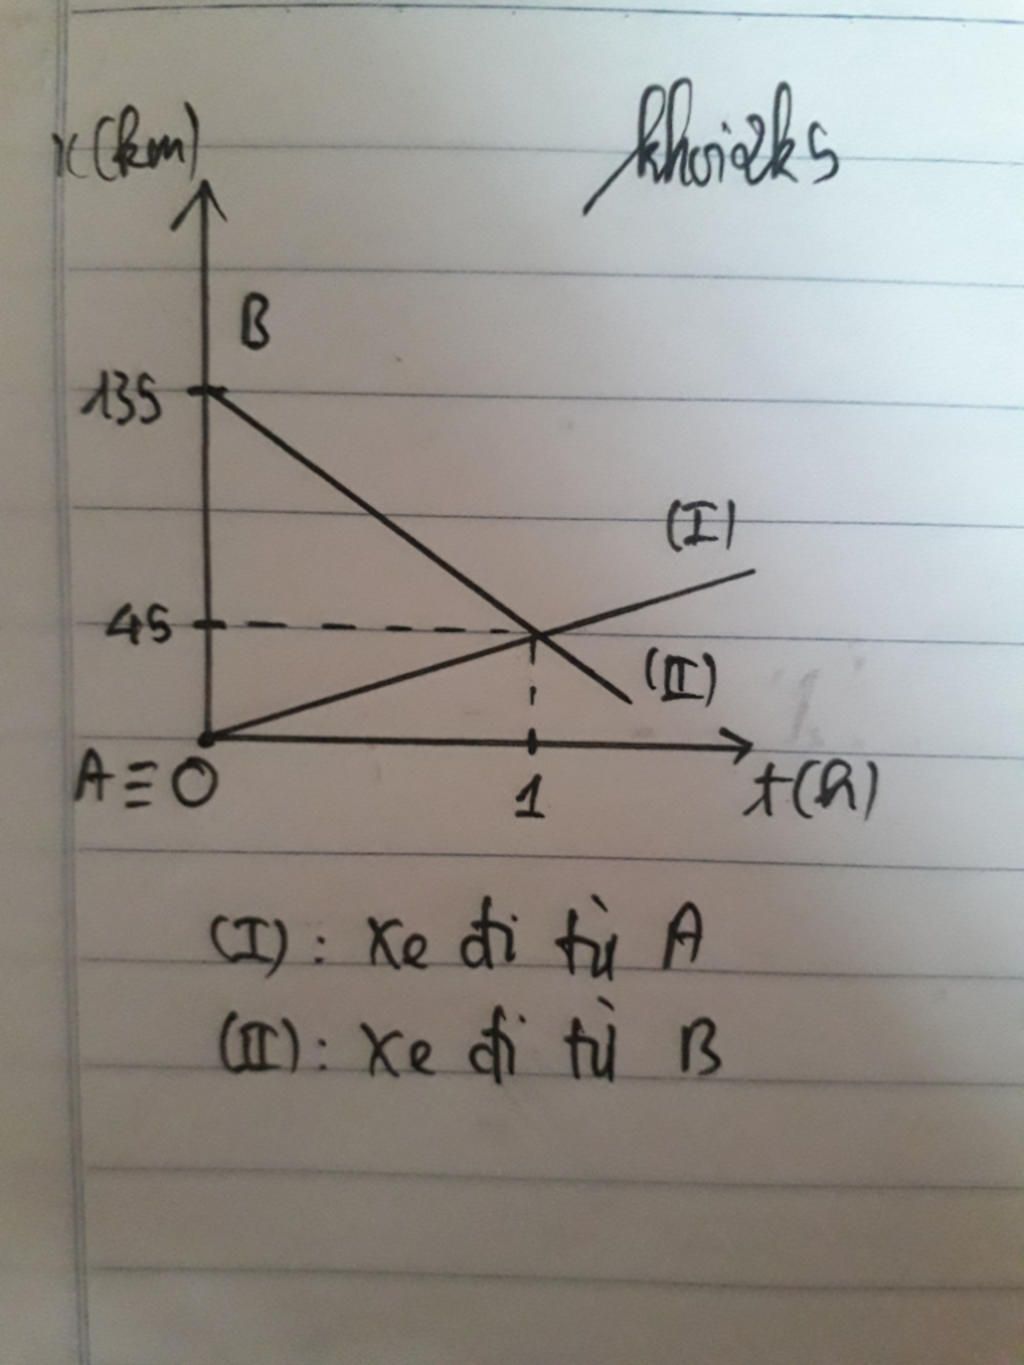 x(km)
khoi2k5
B
135
(I)
45
(II)
A ≡ O
1
t(h)
(I): Xe đi từ A
(II): Xe đi từ B